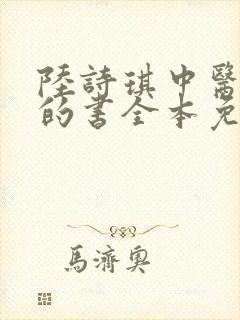 陸詩琪中醫
的書全本免
馬濟奧